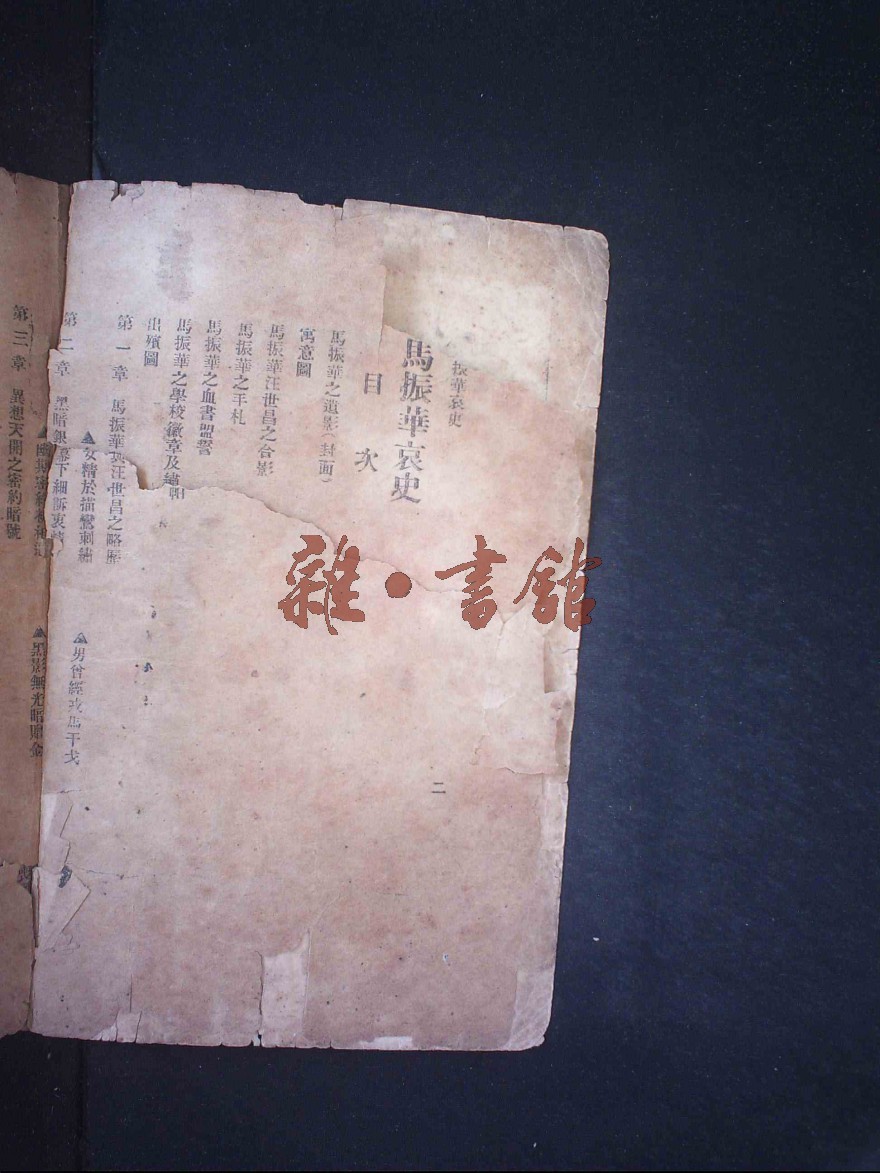 振華哀史
馬振華哀史
目次
馬振華之遺影(封面)
寓意圖
馬振華汪世昌之合影
馬振華之手札
馬振華之血書盟誓
馬振華之學校徽章及繡㡧
出殯圖
第一章 馬振華與汪世昌之略歷
▲女精於描鸞刺繡 ▲男曾經戎馬干戈
第二章 黑暗銀幕下細訴衷情
▲黑影無光暗贈金
第三章 異想天開之密約暗號
二
雜·書館